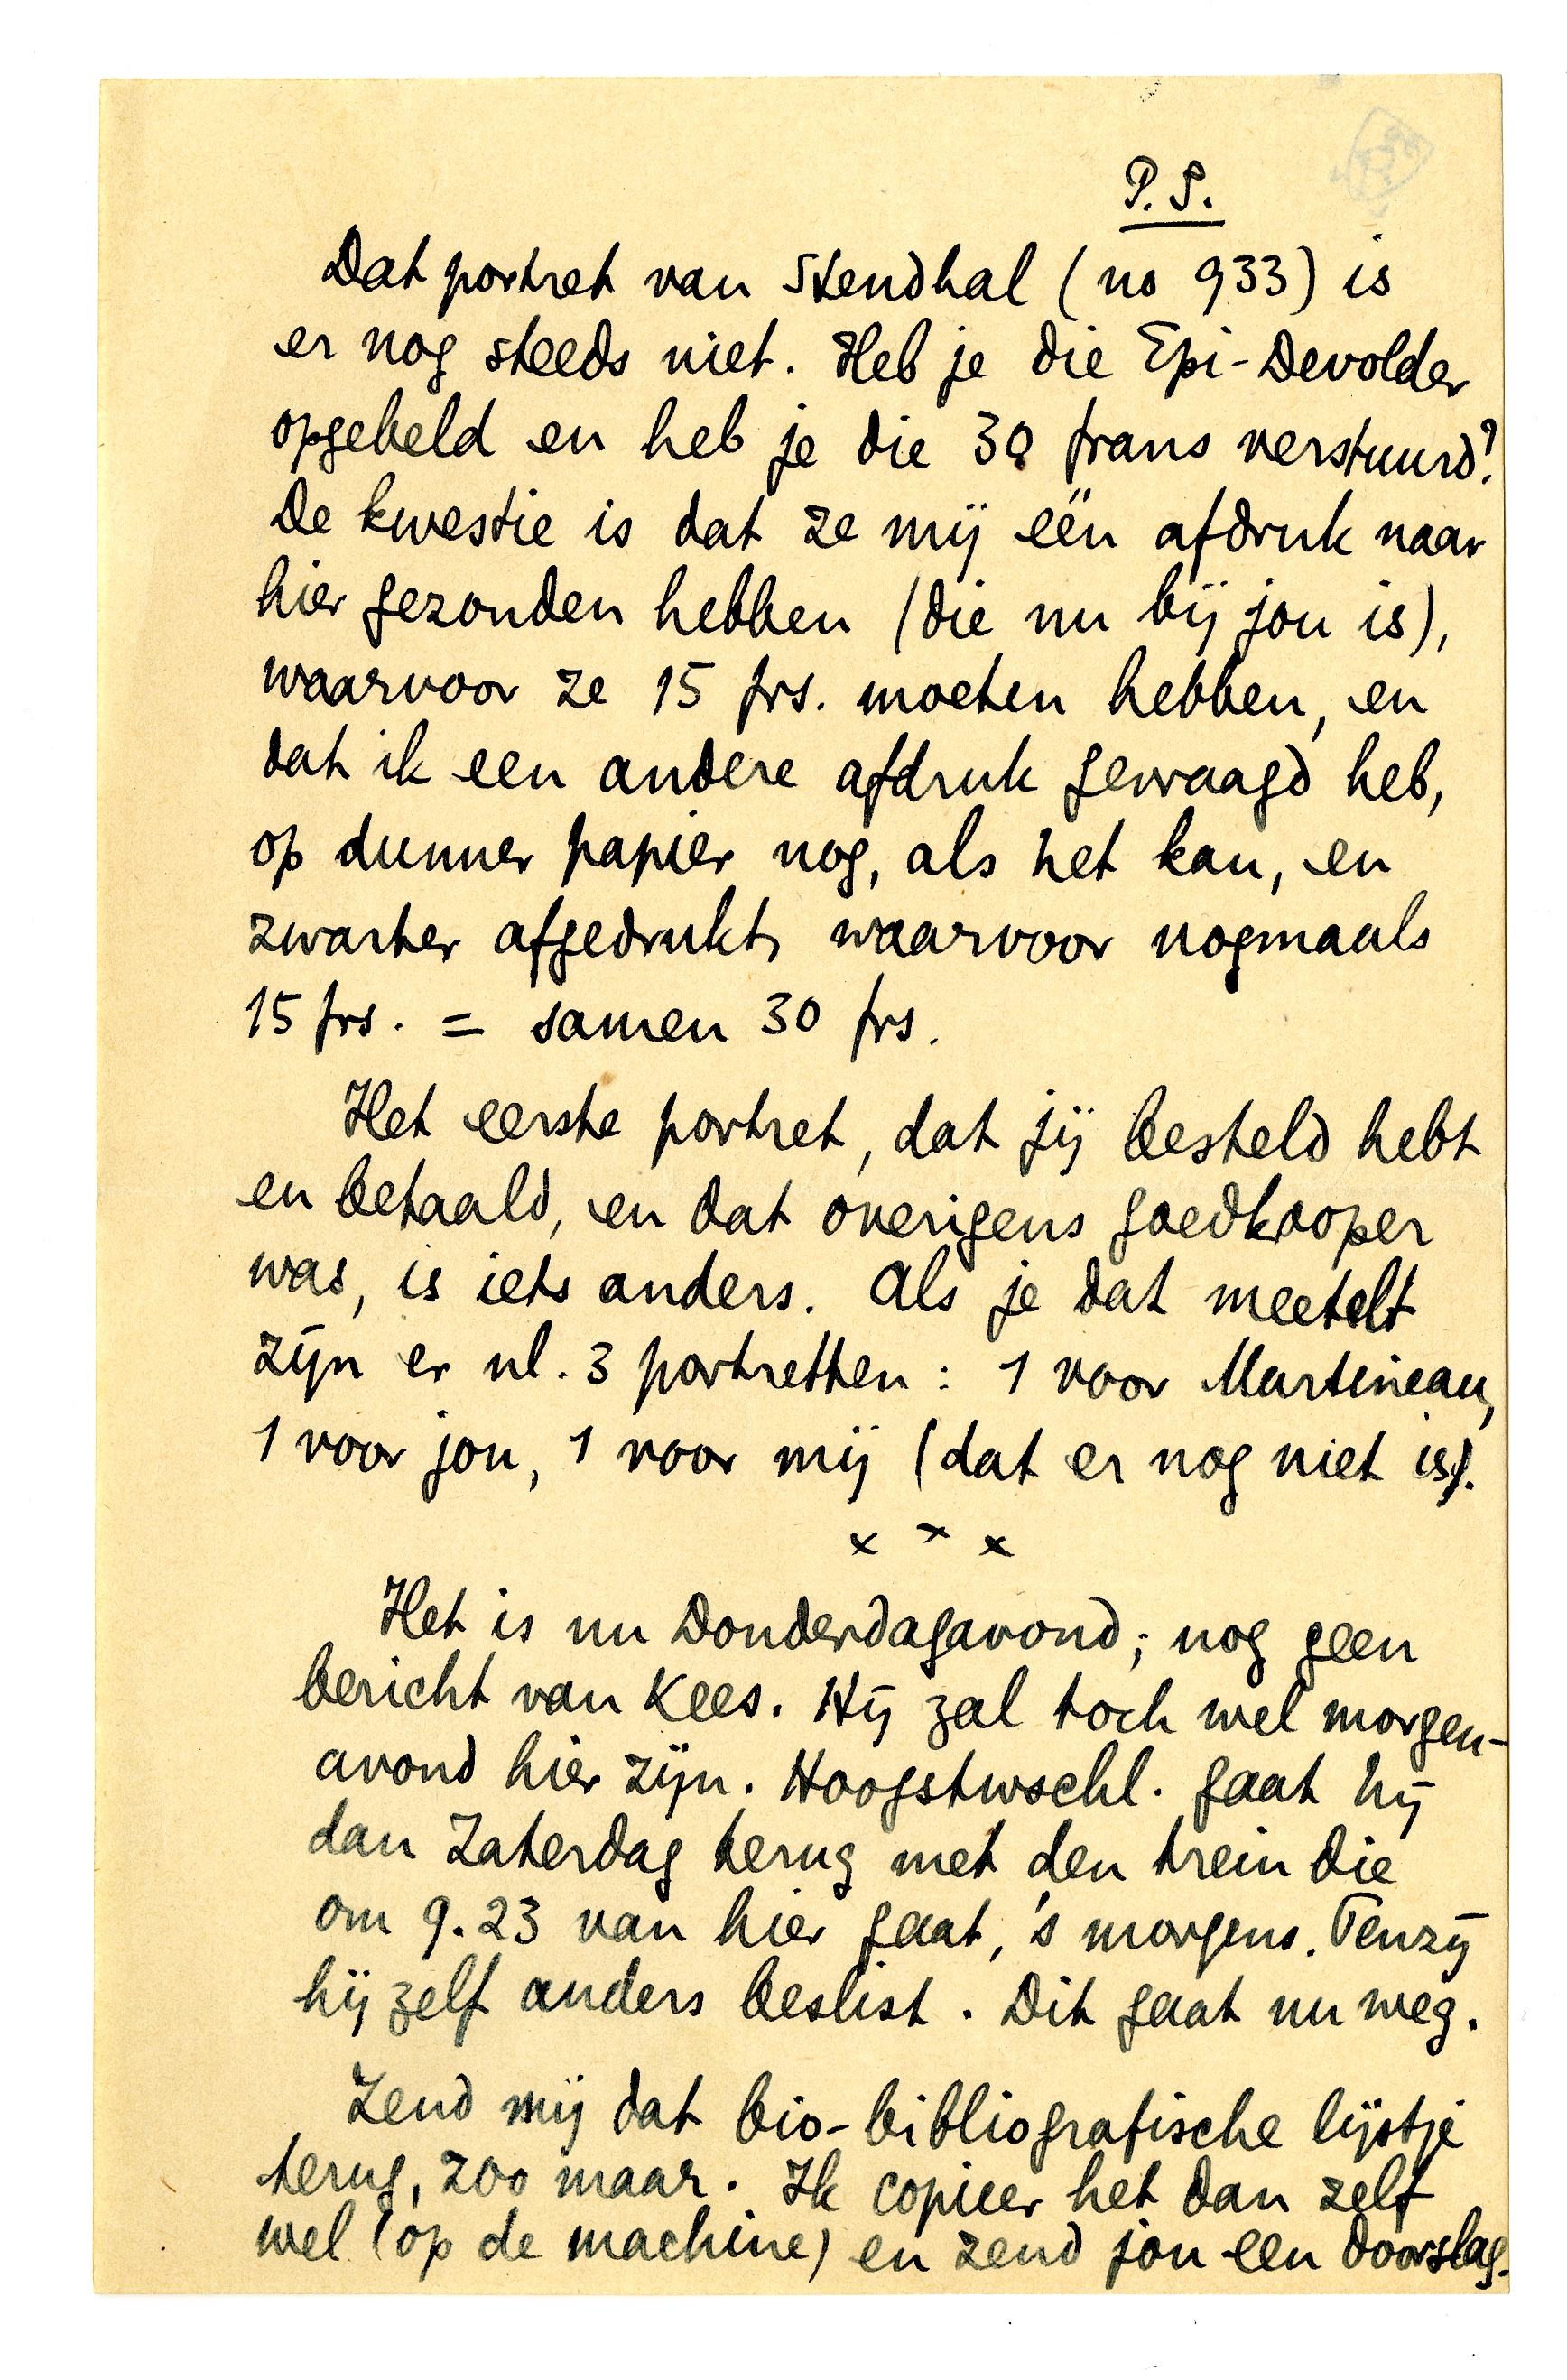 P.S.
Dat portret van Stendhal (no 933) is
er nog steeds niet. Heb je die Epi-Devolder
opgebeld en heb je die 30 frans verstuurd?
De kwestie is dat ze mij één afdruk naar
hier gezonden hebben (die nu bij jou is),
waarvoor ze 15 frs. moeten hebben, en
dat ik een andere afdruk gevraagd heb,
op dunner papier nog, als het kan, en
zwarter afgedrukt, waarvoor nogmaals
15 frs. = samen 30 frs.
Het eerste portret, dat jij besteld hebt
en betaald, en dat overigens goedkooper
was, is iets anders. Als je dat meetelt
zijn er nl. 3 portretten: 1 voor Martineau,
1 voor jou, 1 voor mij (dat er nog niet is).
x x x
Het is nu Donderdagavond; nog geen
bericht van Kees. Hij zal toch wel morgen-
avond hier zijn. Hoogstwschl. gaat hij
dan Zaterdag terug met den trein die
om 9.23 van hier gaat, 's morgens. Tenzij
hij zelf anders beslist. Dit gaat nu weg.
Zend mij dat bio-bibliografische lijstje
terug, zoo maar. Ik copieer het dan zelf
wel (op de machine) en zend jou een doorslag.